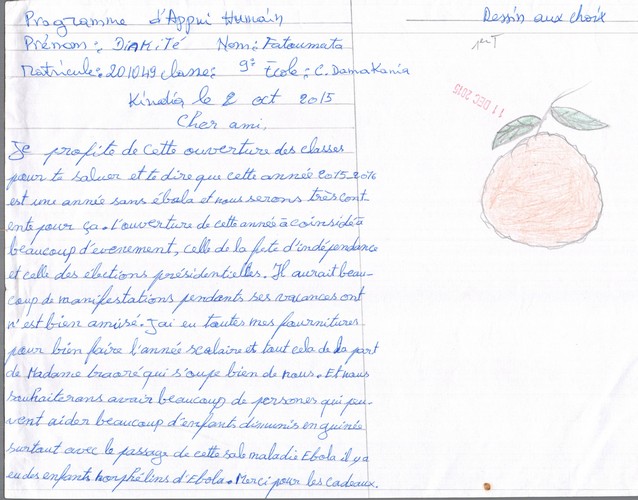 Programme d'Appui Humain
Prénom: DIAKITÉ Nom: Fatoumata
Matricule: 201049 classe: 9è École: C. Damakania
Kindia le 2 oct 2015
Cher ami,
Je profite de cette ouverture des classes
pour te saluer et te dire que cette année 2015-2016
est une année sans ébola et nous serons très cont
ente pour ça. l'ouverture de cette année à coinsidé à
beaucoup d'evenement, celle de la fête d'indépendance
et celle des élections présidentielles. Il aurait beau-
coup de manifestations pendants ses vacances ont
n'est bien amusé. J'ai eu toutes mes fournitures
pour bien faire l'année scolaire et tout cela de la part
de Madame traoré qui s'oupe bien de nous. Et nous
souhaiterons avoir beaucoup de persones qui peu-
vent aider beaucoup d'enfants dimunis en guinée
surtout avec le passage de cette sale maladie Ebola il y a
eu des enfants horphélins d'Ebola. Merci pour les cadeaux.
Dessin aux choix
11 DEC 2015